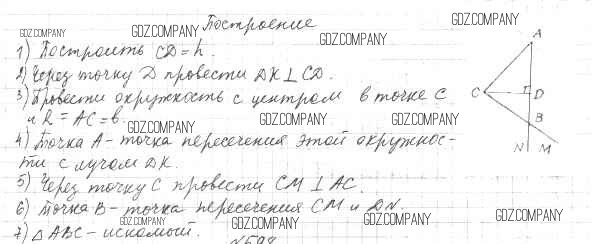 Построение
1) Построить CD = h.
2) Через точку D провести DK ⊥ CD.
3) Провести окружность с центром в точке C
и R = AC = b.
4) Точка A - точка пересечения этой окружнос-
ти с лучом DK.
5) Через точку C провести CM ⊥ AC.
6) Точка B - точка пересечения CM и DN.
7) △ABC - искомый.
N598
A
C
D
B
N
M
GDZ.COMPANY
GDZ.COMPANY
GDZ.COMPANY
GDZ.COMPANY
GDZ.COMPANY
GDZ.COMPANY
GDZ.COMPANY
GDZ.COMPANY
GDZ.COMPANY
GDZ.COMPANY
GDZ.COMPANY
GDZ.COMPANY
GDZ.COMPANY
GDZ.COMPANY